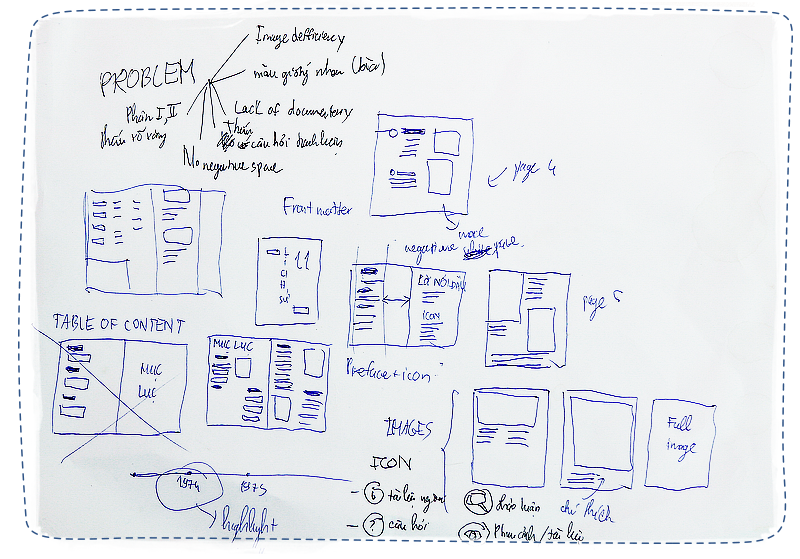 PROBLEM
Image defficiency
màu giấy nhau (bìa)
Phần I, II
thiếu rõ ràng
Lack of documentary
Thiếu
câu hỏi thảo luận
No negative space
page 4
Front matter
more
negative space.
LỊCH SỬ 11
LỜI NÓI ĐẦU
ICON
page 5
Preface + icon
TABLE OF CONTENT
MỤC LỤC
MỤC LỤC
IMAGES
Full image
chú thích
ICON
tài liệu nguồn
? câu hỏi
thảo luận
Phim ảnh / tài liệu
1974
1975
highlight